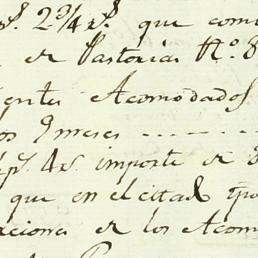 p.s 2 3/4 r.s que com
de Pastorias N.o 8
entes Acomodados
os 9 meses
p.s 4 r.s importe de
que en el citad
aciones de los Acom